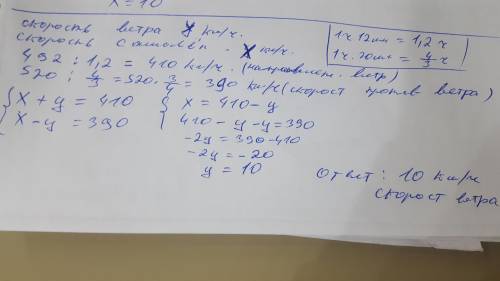 x = 10
скорость ветра y км/ч.
скорость самолёт - x км/ч.
1 ч 12 мин = 1,2 ч
1 ч. 20 мин = 4/3 ч
492 : 1,2 = 410 км/ч. ( ветр)
520 : 4/3 = 520 · 3/4 = 390 км/ч (скорост против ветра)
{ x + y = 410
x - y = 390
{ x = 410 - y
410 - y - y = 390
-2y = 390 - 410
-2y = -20
y = 10
Ответ: 10 км/ч
скорост ветра